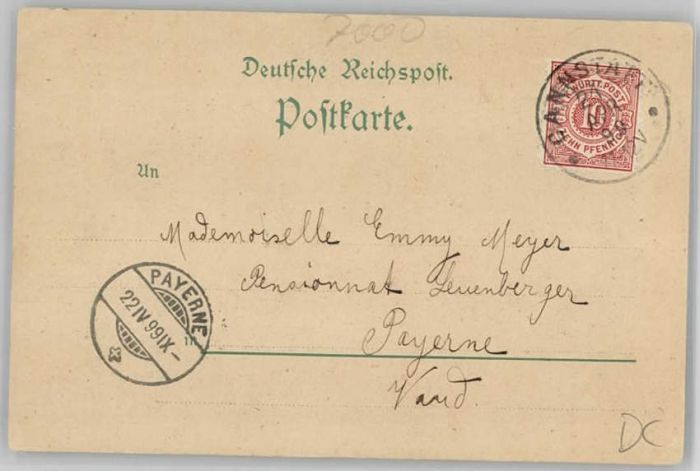 7000
Deutsche Reichspost.
Postkarte.
CANNSTATT
WÜRTT. POST
10
ZEHN PFENNIG
An
Mademoiselle Emmy Meyer
Pensionnat Leuenberger
in
Payerne
Vaud.
PAYERNE
22 IV 99 IX–
DC